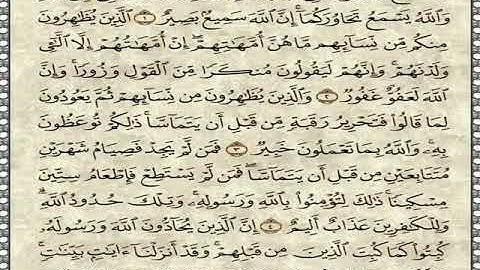 وَٱللَّهُ يَسْمَعُ تَحَاوُرَكُمَآ إِنَّ ٱللَّهَ سَمِيعٌۢ بَصِيرٌ ١ ٱلَّذِينَ يُظَٰهِرُونَ
مِنكُم مِّن نِّسَآئِهِم مَّا هُنَّ أُمَّهَٰتِهِمْ إِنْ أُمَّهَٰتُهُمْ إِلَّا ٱلَّٰٓـِٔي
وَلَدْنَهُمْ وَإِنَّهُمْ لَيَقُولُونَ مُنكَرًا مِّنَ ٱلْقَوْلِ وَزُورًا وَإِنَّ
ٱللَّهَ لَعَفُوٌّ غَفُورٌ ٢ وَٱلَّذِينَ يُظَٰهِرُونَ مِن نِّسَآئِهِمْ ثُمَّ يَعُودُونَ
لِمَا قَالُوا۟ فَتَحْرِيرُ رَقَبَةٍ مِّن قَبْلِ أَن يَتَمَآسَّا ذَٰلِكُمْ تُوعَظُونَ
بِهِۦ وَٱللَّهُ بِمَا تَعْمَلُونَ خَبِيرٌ ٣ فَمَن لَّمْ يَجِدْ فَصِيَامُ شَهْرَيْنِ
مُتَتَابِعَيْنِ مِن قَبْلِ أَن يَتَمَآسَّا فَمَن لَّمْ يَسْتَطِعْ فَإِطْعَامُ سِتِّينَ
مِسْكِينًا ذَٰلِكَ لِتُؤْمِنُوا۟ بِٱللَّهِ وَرَسُولِهِۦ وَتِلْكَ حُدُودُ ٱللَّهِ
وَلِلْكَٰفِرِينَ عَذَابٌ أَلِيمٌ ٤ إِنَّ ٱلَّذِينَ يُحَآدُّونَ ٱللَّهَ وَرَسُولَهُۥ
كُبِتُوا۟ كَمَا كُبِتَ ٱلَّذِينَ مِن قَبْلِهِمْ وَقَدْ أَنزَلْنَآ ءَايَٰتٍۭ بَيِّنَٰتٍ